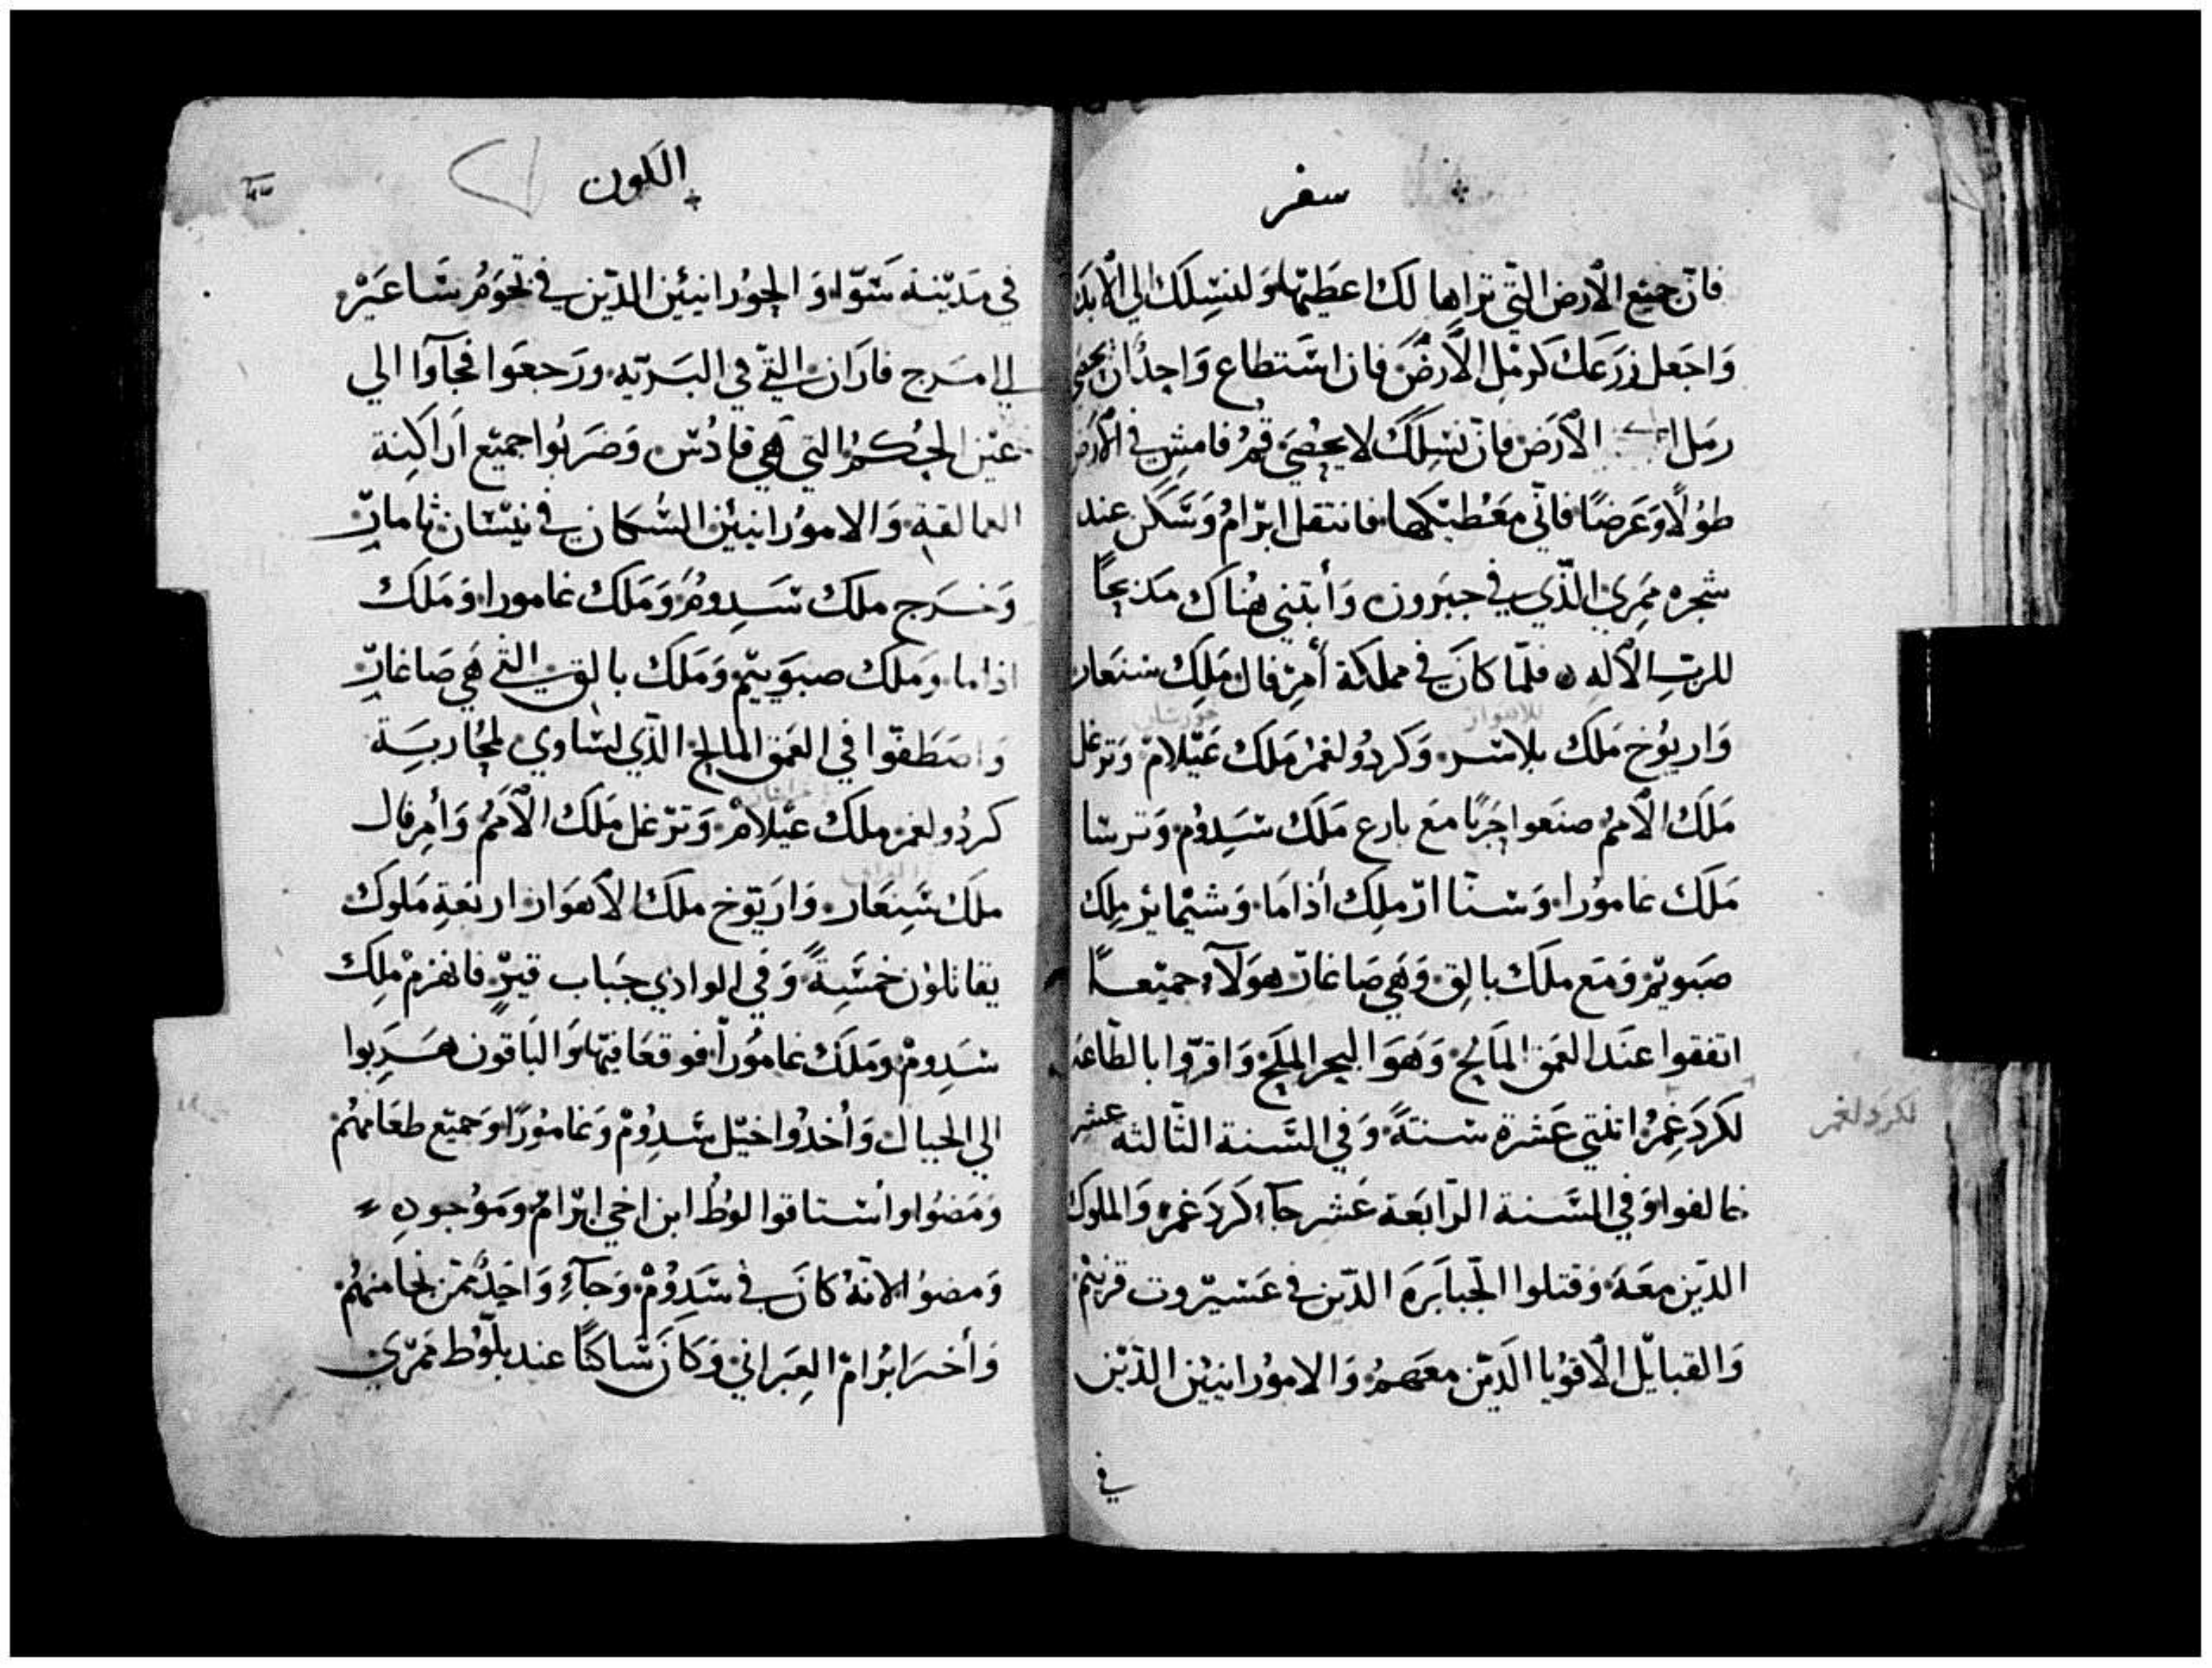 سفر
فان جميع الارض التي تراها لك اعطيها ولنسلك الي الابد
واجعل زرعك كرمل الارض فان استطاع واحدًا ان يحصي
رمل الارض فان نسلك لا يحصي قم فامش في الارض
طولًا وعرضًا فاني معطيكها فانتقل ابرام وسكن عند
شجره ممري الذي في حبرون وأبتني هناك مذبحًا
للرب الاله فلما كان في مملكة أمرفال ملك سنعار
للاهواز
خورستان
واريوخ ملك بلاسر وكردولغمر ملك عيلام وترغل
ملك الامم صنعوا حربًا مع بارع ملك سدوم وترسا
ملك غامورا وسنا ادّ ملك أداما وشيمابر ملك
صبويم ومع ملك بالق وهي صاغار هولآء جميعًا
اتفقوا عند العمق المالح وهو البحر الملح واقروا بالطاعه
لكردغمر اثنتي عشرة سنةً وفي السنة الثالثه عشر
لكردلغمر
خالفوا وفي السنة الرابعة عشر جآء كردغمر والملوك
الذين معه وقتلوا الجبابره الذين في عشيروت قرنيم
والقبايل الاقويا الذين معهم والامورانيين الذين
في
الكون
في مدينة سوا والحورانيين الذين في تخوم ساعير
الي مرج فاران التي في البريه ورجعوا فجآوا الي
عين الحكم التي هي قادس وضربوا جميع اراكنة
العمالقة والامورانيين السكان في نيسان ثامار
وخرج ملك سدوم وملك غامورا وملك
اداما وملك صبوييم وملك بالق التي هي صاغار
واصطفوا في العمق المالح الذي لساوي لمحاربة
كردولغمر ملك عيلام وترغل ملك الامم وأمرفال
ملك سنعار واريوخ ملك الاهواز اربعة ملوك
يقاتلون خمسةً وفي الوادي جباب قير فانهزم ملك
سدوم وملك غامورا فوقعا فيها والباقون هربوا
الي الجبال وأخدوا خيل سدوم وغامورا وجميع طعامهم
ومضوا واستاقوا لوط ابن اخي ابرام وموجوده
ومضوا لانه كان في سدوم وجآء واحد ممن نجا منهم
وأخبر ابرام العبراني وكان ساكنًا عند بلوط ممري